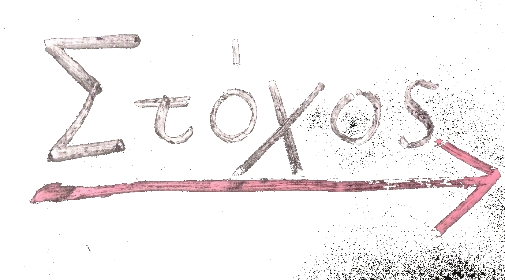 Στόχος